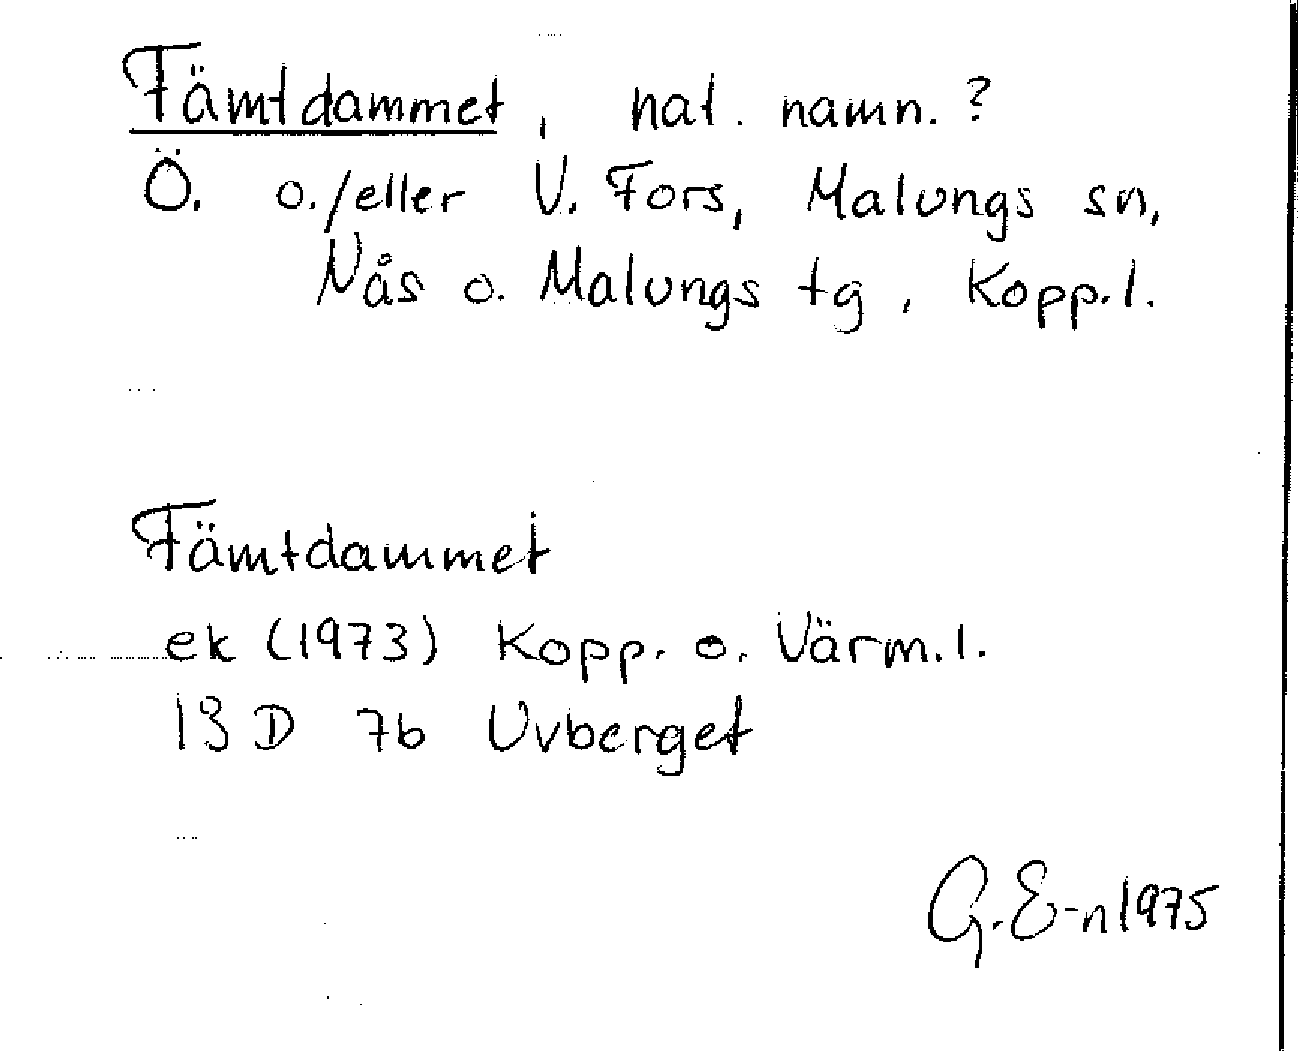 Fämtdammet, nat. namn.?
Ö. o./eller V. Fors, Malungs sn,
Nås o. Malungs tg, Kopp.l.
Fämtdammet
ek (1973) Kopp. o. Värm.l.
13 D 7b Uvberget
G. E-n 1975